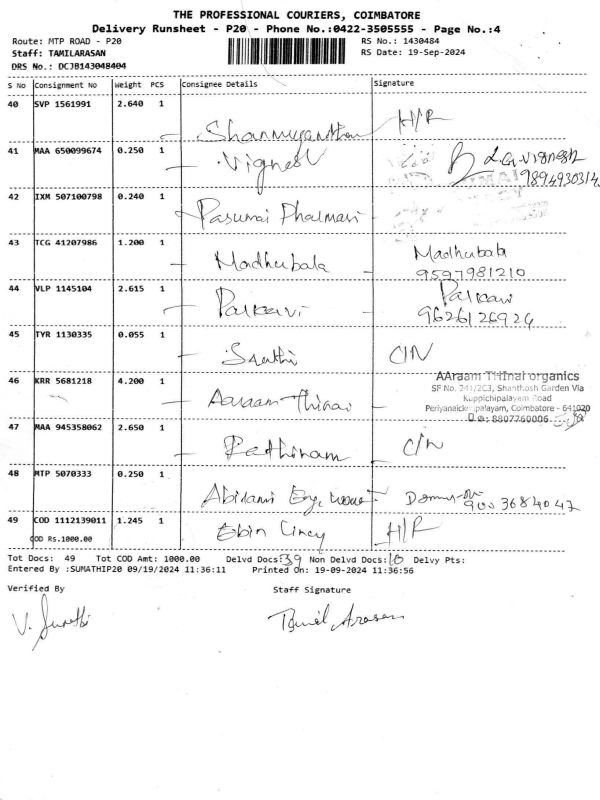 THE PROFESSIONAL COURIERS, COIMBATORE
Delivery Runsheet - P20 - Phone No.:0422-3505555 - Page No.:4
Route: MTP ROAD - P20 RS No.: 1430484
Staff: TAMILARASAN RS Date: 19-Sep-2024
DRS No.: DCJB143048404
S No Consignment No Weight PCS Consignee Details Signature
40 SVP 1561991 2.640 1
H/R
41 MAA 650099674 0.250 1
Vignesh L.G.Vignesh
9894930314
42 IXM 507100798 0.240 1
43 TCG 41207986 1.200 1
Madhubala Madhubala
9597981210
44 VLP 1145104 2.615 1
9626126924
45 TYR 1130335 0.055 1
C/N
46 KRR 5681218 4.200 1
Aaraam Thinai
AAraam THinai organics
SF No. 241/2C3, Shanthosh Garden Via
Kuppichipalayam Road
Periyanaickenpalayam, Coimbatore - 641020
8807760006
47 MAA 945358062 2.650 1
Rathinam C/N
48 MTP 5070333 0.250 1
Abirami
9003684042
49 COD 1112139011 1.245 1
Ebin H/R
COD Rs.1000.00
Tot Docs: 49 Tot COD Amt: 1000.00 Delvd Docs:39 Non Delvd Docs:10 Delvy Pts:
Entered By :SUMATHIP20 09/19/2024 11:36:11 Printed On: 19-09-2024 11:36:56
Verified By Staff Signature
Tamil Arasan